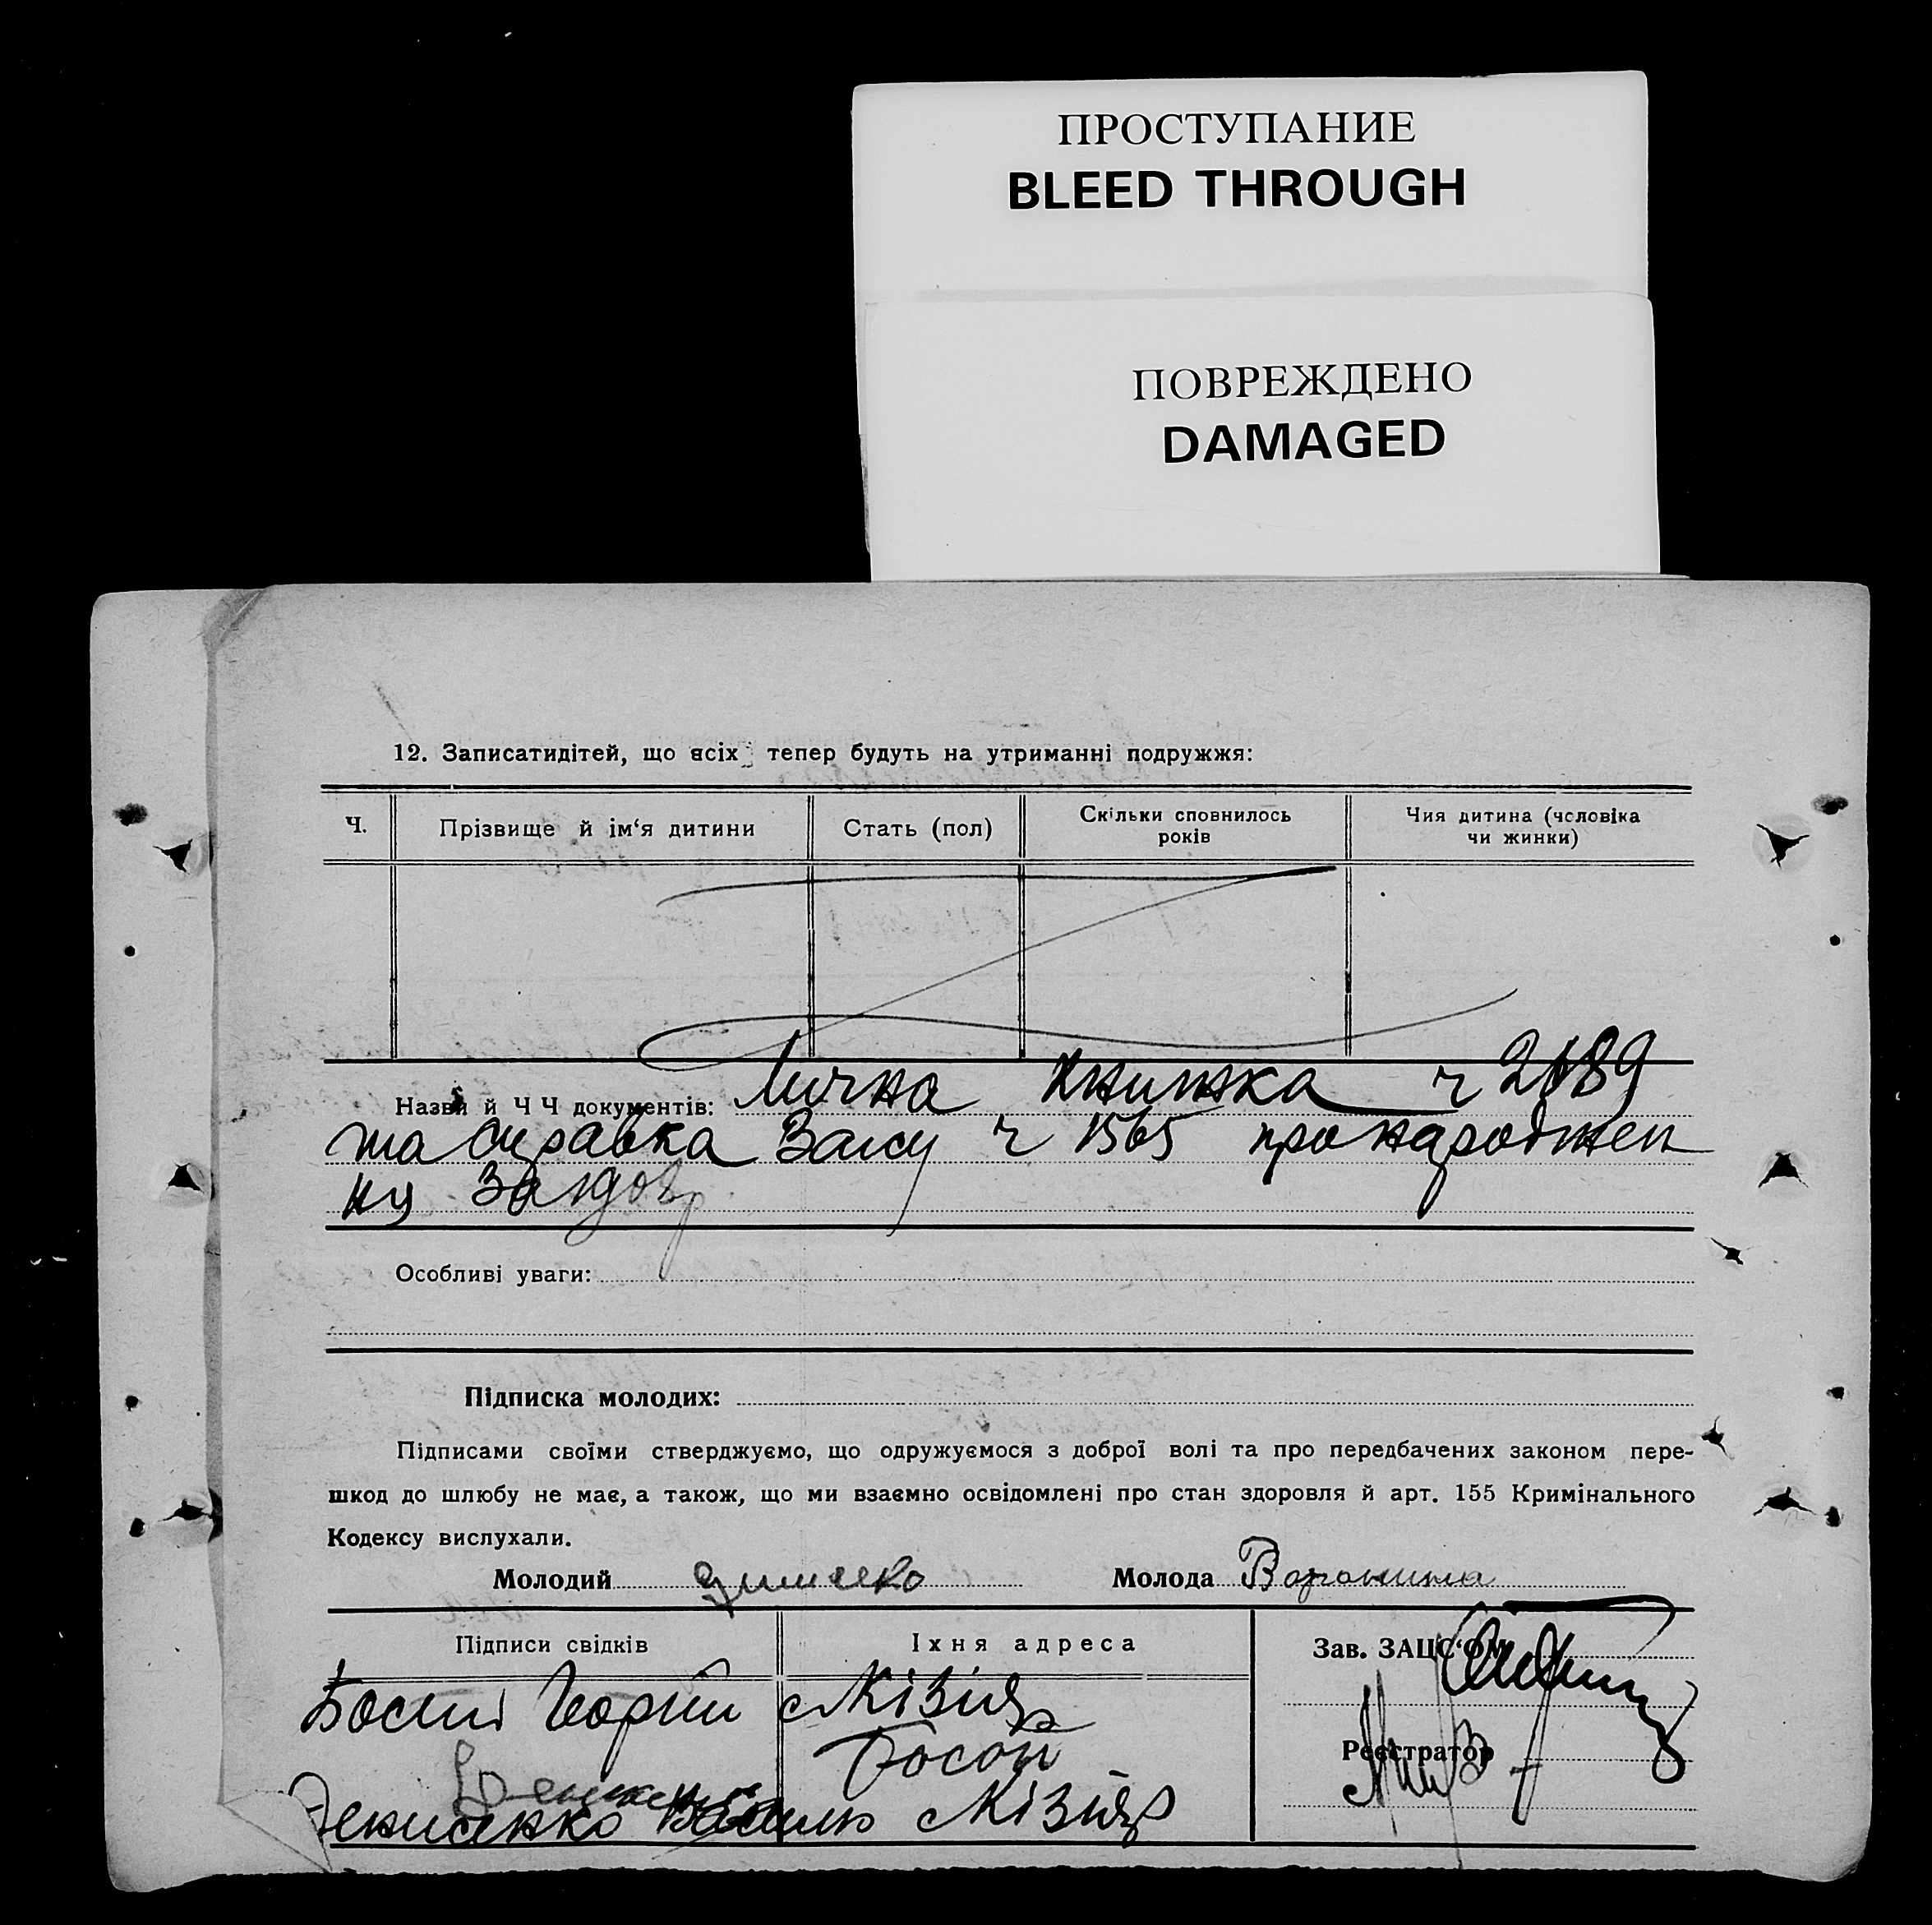 ПРОСТУПАНИЕ
BLEED THROUGH
ПОВРЕЖДЕНО
DAMAGED
12. Записатидітей, що всіх тепер будуть на утриманні подружжя:
Ч. Прізвище й ім‘я дитини Стать (пол) Скільки сповнилось років Чия дитина (чоловіка чи жинки)
Назви й Ч Ч документів: Лична книжка ч 2189
та справка Загсу ч 1565 про народжен
ня
Особливі уваги:
Підписка молодих:
Підписами своїми стверджуємо, що одружуємося з доброї волі та про передбачених законом пере-
шкод до шлюбу не має, а також, що ми взаємно освідомлені про стан здоровля й арт. 155 Кримінального
Кодексу вислухали.
Молодий Молода Воронина
Підписи свідків Їхня адреса Зав. ЗАЦС‘ОМ
Босий Георгій
Босой Реєстратор
Денисенко Василь